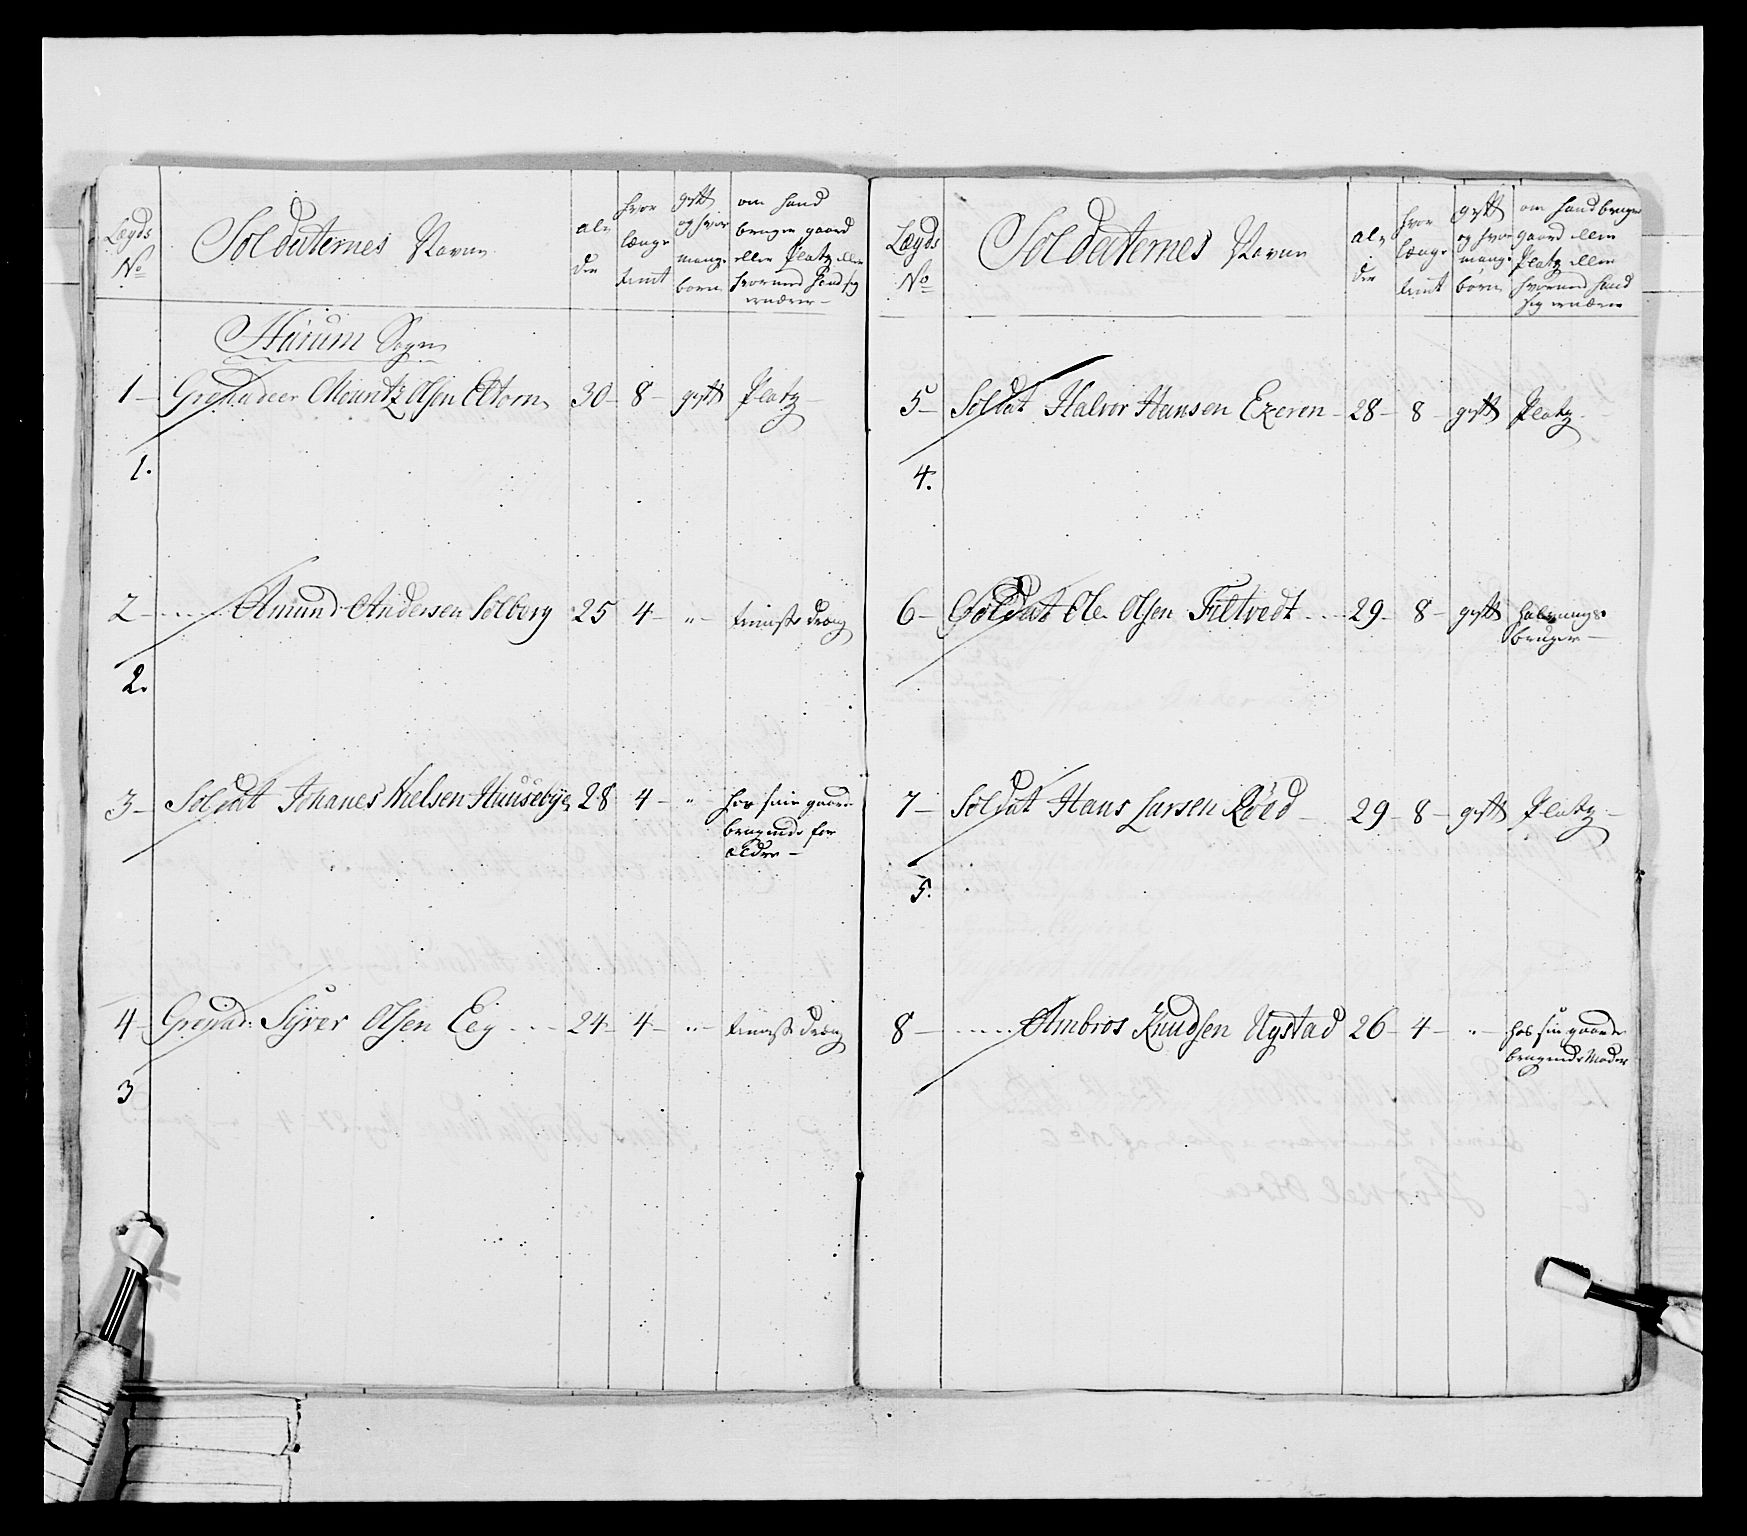 Lægds No
Soldaternes Navne
alder
hvor længe tient
gift og hvor mange børn
om hand bruger gaard eller Platz eller hvormed hand sig ernærer
Hurum Sogn
1 Grenadeer Mouritz Olsen Eltorn 30 8 gift Platz
1.
2 Amund Andersen Solberg 25 4 " tieniste dreng
2.
3 Soldat Johanes Nielsen Huusebye 28 4 " hos sine gaard brugende for ældre
4 Grenad: Syver Olsen Eeg 24 4 " tieniste dreng
3
Lægds No
Soldaternes Navne
alder
hvor længe tient
gift og hvor mange børn
om hand bruger gaard eller Platz eller hvormed hand sig ernærer
5 Soldat Halvor Hansen Exeren 28 8 gift Platz
4.
6 Soldat Ole Olsen Tiltvedt 29 8 gift bruger
7 Soldat Hans Larsen Røed 29 8 gift Platz
5.
8 Ambros Knudsen Rygstad 26 4 " hos sin gaard brugende Moder